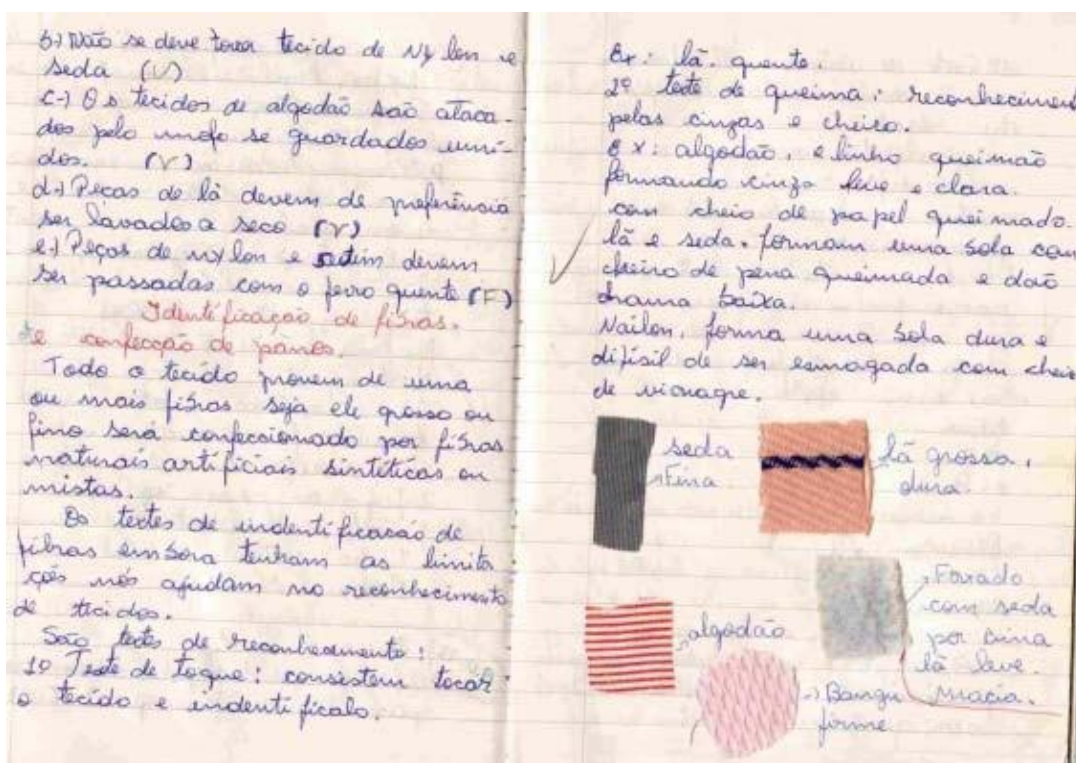 b-) Não se deve torcer tecido de Nylon e
seda (V)
c-) Os tecidos de algodão saõ ataca-
dos pelo mofo se guardados umí-
dos. (V)
d-) Peças de lã devem de preferência
ser lavados a seco (V)
e-) Peças de nylon e setim devem
ser passadas com o ferro quente (F)
Identificação de fibras.
e confecção de panos.
Todo o tecido provem de uma
ou mais fibras seja ele grosso ou
fino será confeccionado por fibras
naturais artificiais sintéticas ou
mistas.
Os textes de indentificasão de
fibras embora tenham as limita
ções nós ajudam no reconhecimento
de tecidos.
Saõ textes de reconhecimento:
1º Teste de toque: consistem tocar
o tecido e indentificalo.
Ex: lã. quente.
2º teste de queima: reconheciment
pelas cinzas e cheiro.
Ex: algodão, e linho queimaõ
formando cinza leve e clara.
com cheio de papel queimado.
lã e seda. formam uma bola com
cheiro de pena queimada e daõ
chama baixa.
Nailon, forma uma bola dura e
difísil de ser esmagada com chei
de vinagre.
seda
Fina
lã grossa,
dura.
Forrado
com seda
por cima
lã leve
macia.
algodão
Bangu
firme